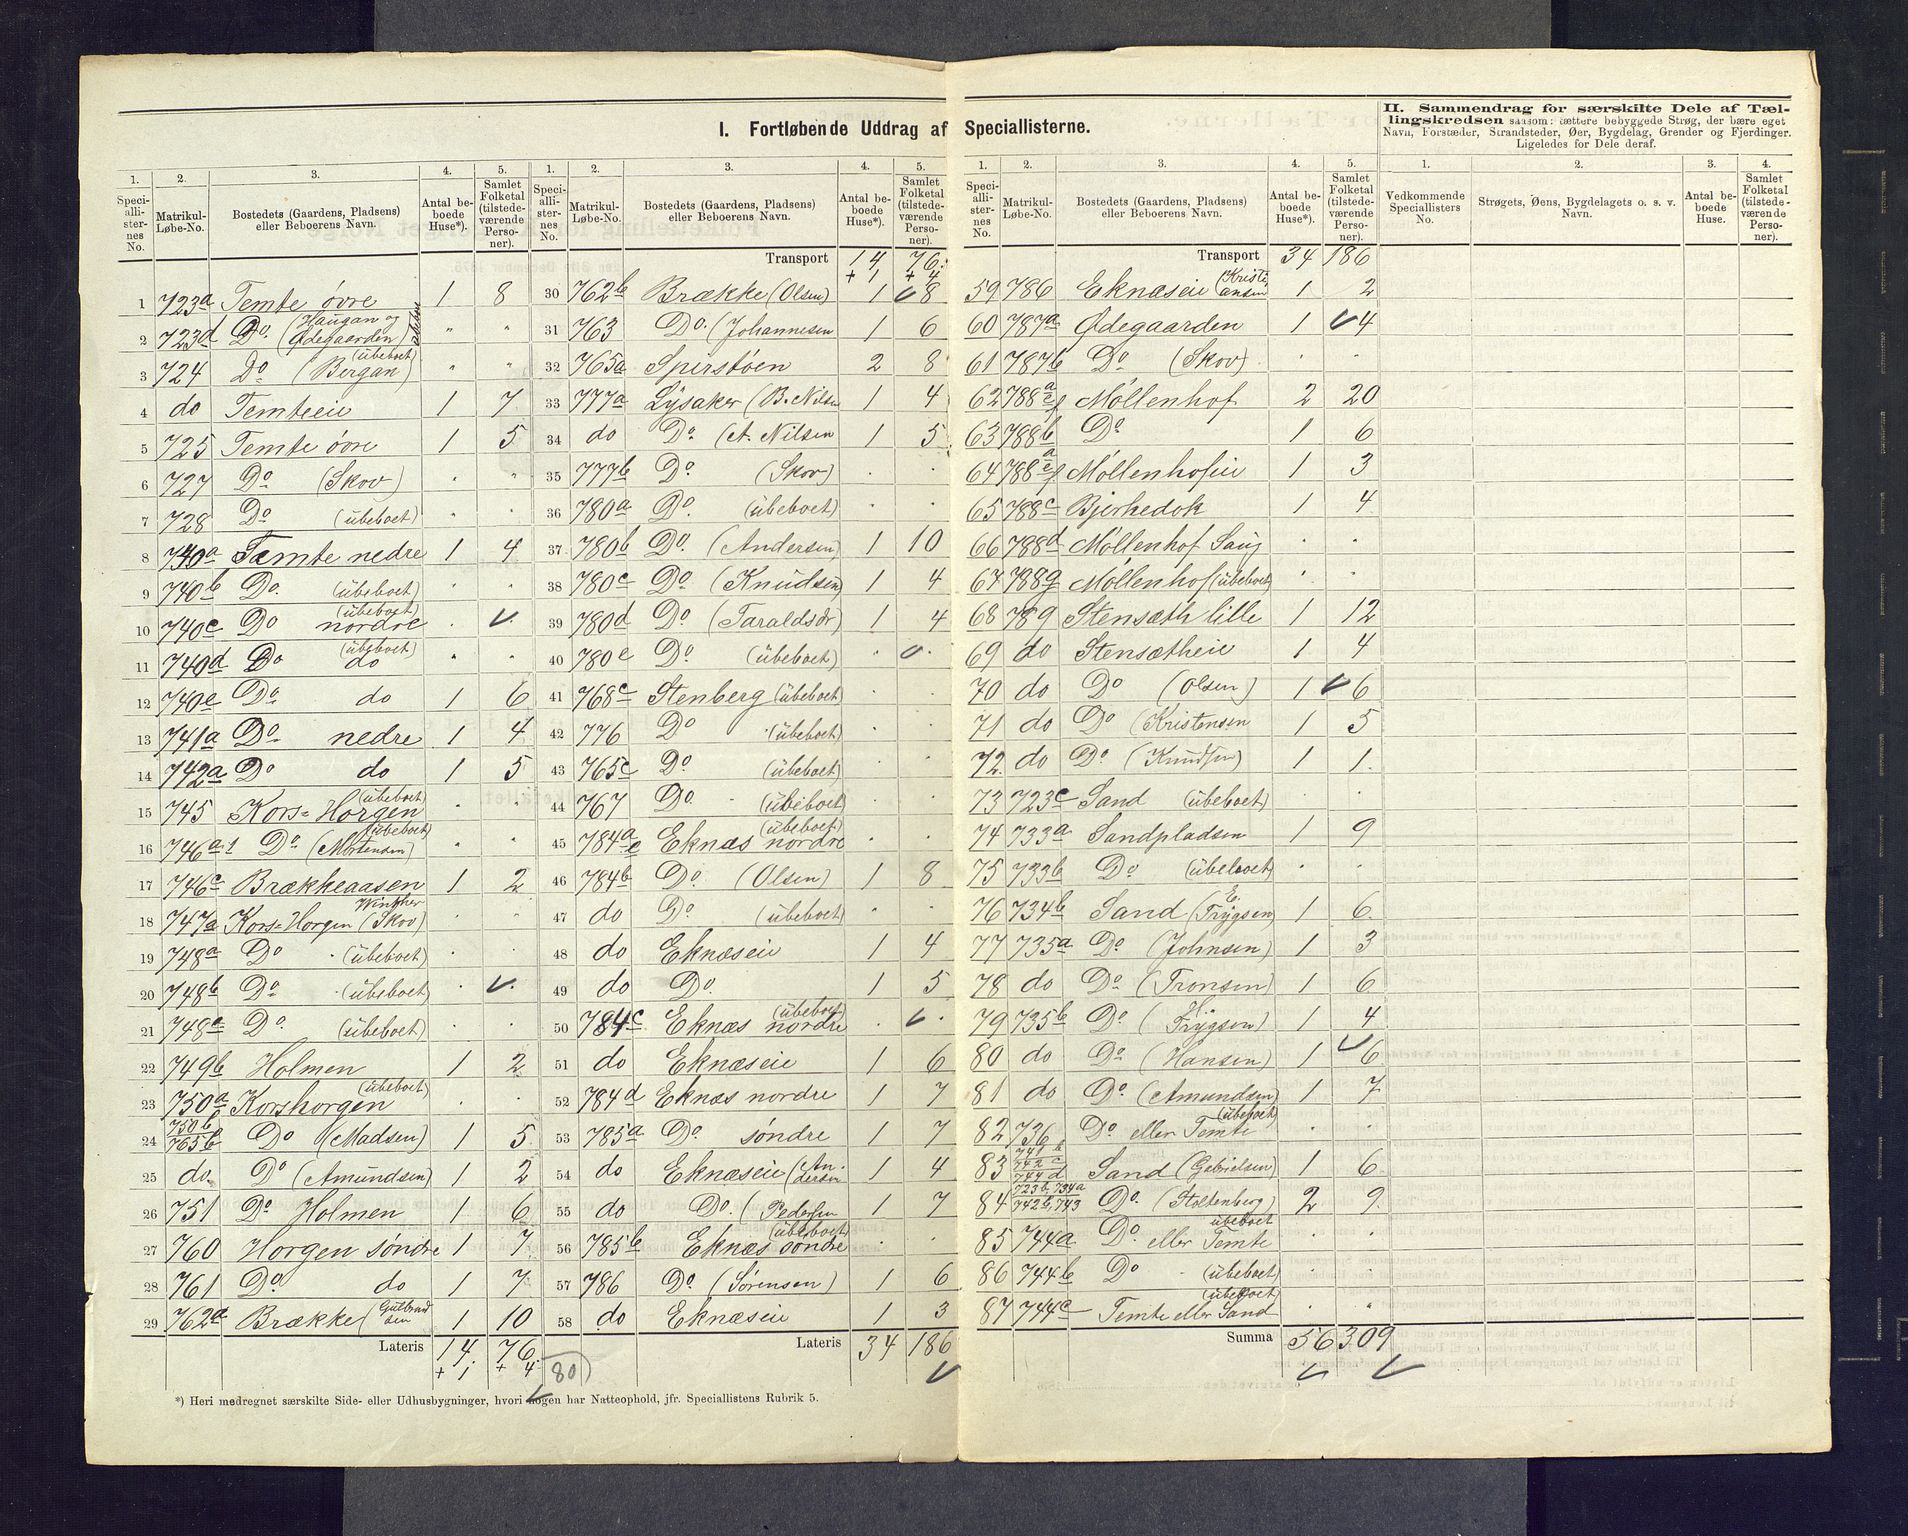 I. Fortløbende Uddrag af Speciallisterne.
II. Sammendrag for særskilte Dele af Tæl-
lingskredsen saasom: tættere bebyggede Strøg, der bære eget
Navn, Forstæder, Strandsteder, Øer, Bygdelag, Grender og Fjerdinger.
Ligeledes for Dele deraf.
1. 2. 3. 4. 5.
Speciallisternes No. Matrikul-Løbe-No. Bostedets (Gaardens, Pladsens) eller Beboerens Navn. Antal beboede Huse*). Samlet Folketal (tilstedeværende Personer).
1 723a Temte øvre 1 8
2 723d Do (Haugan og Ødegaarden) " "
3 724 Do (Bergan) (übeboet) " "
4 do Temteeie 1 7
5 725 Temte øvre 1 5
6 727 Do (Skov) " "
7 728 Do (übeboet) . .
8 740a Temte nedre 1 4
9 740b Do. (übeboet) . .
10 740c Do nordre (übeboet) .
11 740d Do do (übeboet) . .
12 740e Do do 1 6
13 741a Do nedre 1 4
14 742a Do do 1 5
15 745 Kors=Horgen (übeboet) " "
16 746a1 Do (Mortensen) (übeboet) " "
17 746c Brækkeaasen 1 2
18 747a Kors=Horgen (Winther Skov) . .
19 748a Do (übeboet) . .
20 748b Do (übeboet) .
21 748c Do. (übeboet) . .
22 749b Holmen 1 2
23 750a Korshorgen (übeboet) . .
24 750b 765b Do (Madsen) 1 5
25 do. Do (Amundsen) 1 2
26 751 Do Holmen 1 6
27 760 Horgen søndre 1 7
28 761 Do do 1 7
29 762a Brække (Gulbrandsen 1 10
Lateris 14 76
+ 1 + 4
80
*) Heri medregnet særskilte Side- eller Udhusbygninger, hvori nogen har Natteophold, jfr. Speciallistens Rubrik 5.
1. 2. 3. 4. 5.
Speciallisternes No. Matrikul-Løbe-No. Bostedets (Gaardens, Pladsens) eller Beboerens Navn. Antal beboede Huse*). Samlet Folketal (tilstedeværende Personer).
Transport 14 76
+ 1 + 4
30 762b Brække (Olsen) 1 8
31 763 Do. (Johannesen 1 6
32 765a Spirstøen 2 8
33 777a Lysaker (B. Nilsen 1 4
34 do Do (A. Nilsen 1 5
35 777b Do (Skov) . .
36 780a Do. (übeboet) . .
37 780b Do. (Andersen) 1 10
38 780c Do (Knudsen) 1 4
39 780d Do (Taraldsdr) 1 4
40 780e Do (übeboet) . .
41 768c Stenberg (übeboet) . .
42 776 Do (übeboet) . .
43 765c Do. (übeboet) . .
44 767 Do. (übeboet) . .
45 784a e Eknæs nordre (übeboet) . .
46 784b Do. (Olsen) 1 8
47 do Do. (übeboet) . .
48 do Eknæseie 1 4
49 do Do. 1 5
50 784c Eknæs nordre (übeboet) . .
51 do Eknæseie 1 6
52 784d Eknæs nordre 1 7
53 785a Do. søndre 1 7
54 do Eknæseie (Andersen 1 4
55 do Do. (Pedersen 1 7
56 785b Eknæs søndre (übeboet) . .
57 786 Do. (Sørensen) 1 6
58 do Eknæseie 1 3
Lateris 34 186
1. 2. 3. 4. 5.
Speciallisternes No. Matrikul-Løbe-No. Bostedets (Gaardens, Pladsens) eller Beboerens Navn. Antal beboede Huse*). Samlet Folketal (tilstedeværende Personer).
Transport 34 186
59 786 Eknæseie (Kristiansen 1 2
60 787a Ødegaarden 1 4
61 787b Do (Skov) . .
62 788a e f Møllenhof 2 20
63 788b Do 1 6
64 788a e f Møllenhofeie 1 3
65 788c Bjerkedok 1 4
66 788d Møllenhof Saug . .
67 788g Møllenhof (übeboet) . .
68 789 Stensæth lille 1 12
69 do Stensætheie 1 4
70 do Do (Olsen) 1 6
71 do Do (Kristensen 1 5
72. do Do (Knudsen) 1 1.
73 723c Sand (übeboet) . .
74 733a Sandpladsen 1 9
75 733b Do (übeboet) . .
76 734b Sand (E. Trygsen) 1 6
77 735a Do. (Johnsen) 1 3
78 do Do (Tronsen) 1 6
79 735b Do (H. Trygsen) 1 4
80 do Do (Hansen) 1 6
81 do Do. (Amundsen) 1 7
82 736 Do eller Temte (übeboet) . .
83 741b 742c 744d Sand (Gabrielsen) 1 6
84 723b, 734a 742b, 743 Do. (Stoltenberg) 2 9
85 744a Do. eller Temte übeboet . .
86 744b Do (übeboet) . .
87 744c Temte eller Sand (übeboet) . .
Summa 56 309
1. 2. 3. 4.
Vedkommende Speciallisters No. Strøgets, Øens, Bygdelagets o. s. v. Navn. Antal beboede Huse. Samlet Folketal (tilstedeværende Personer).